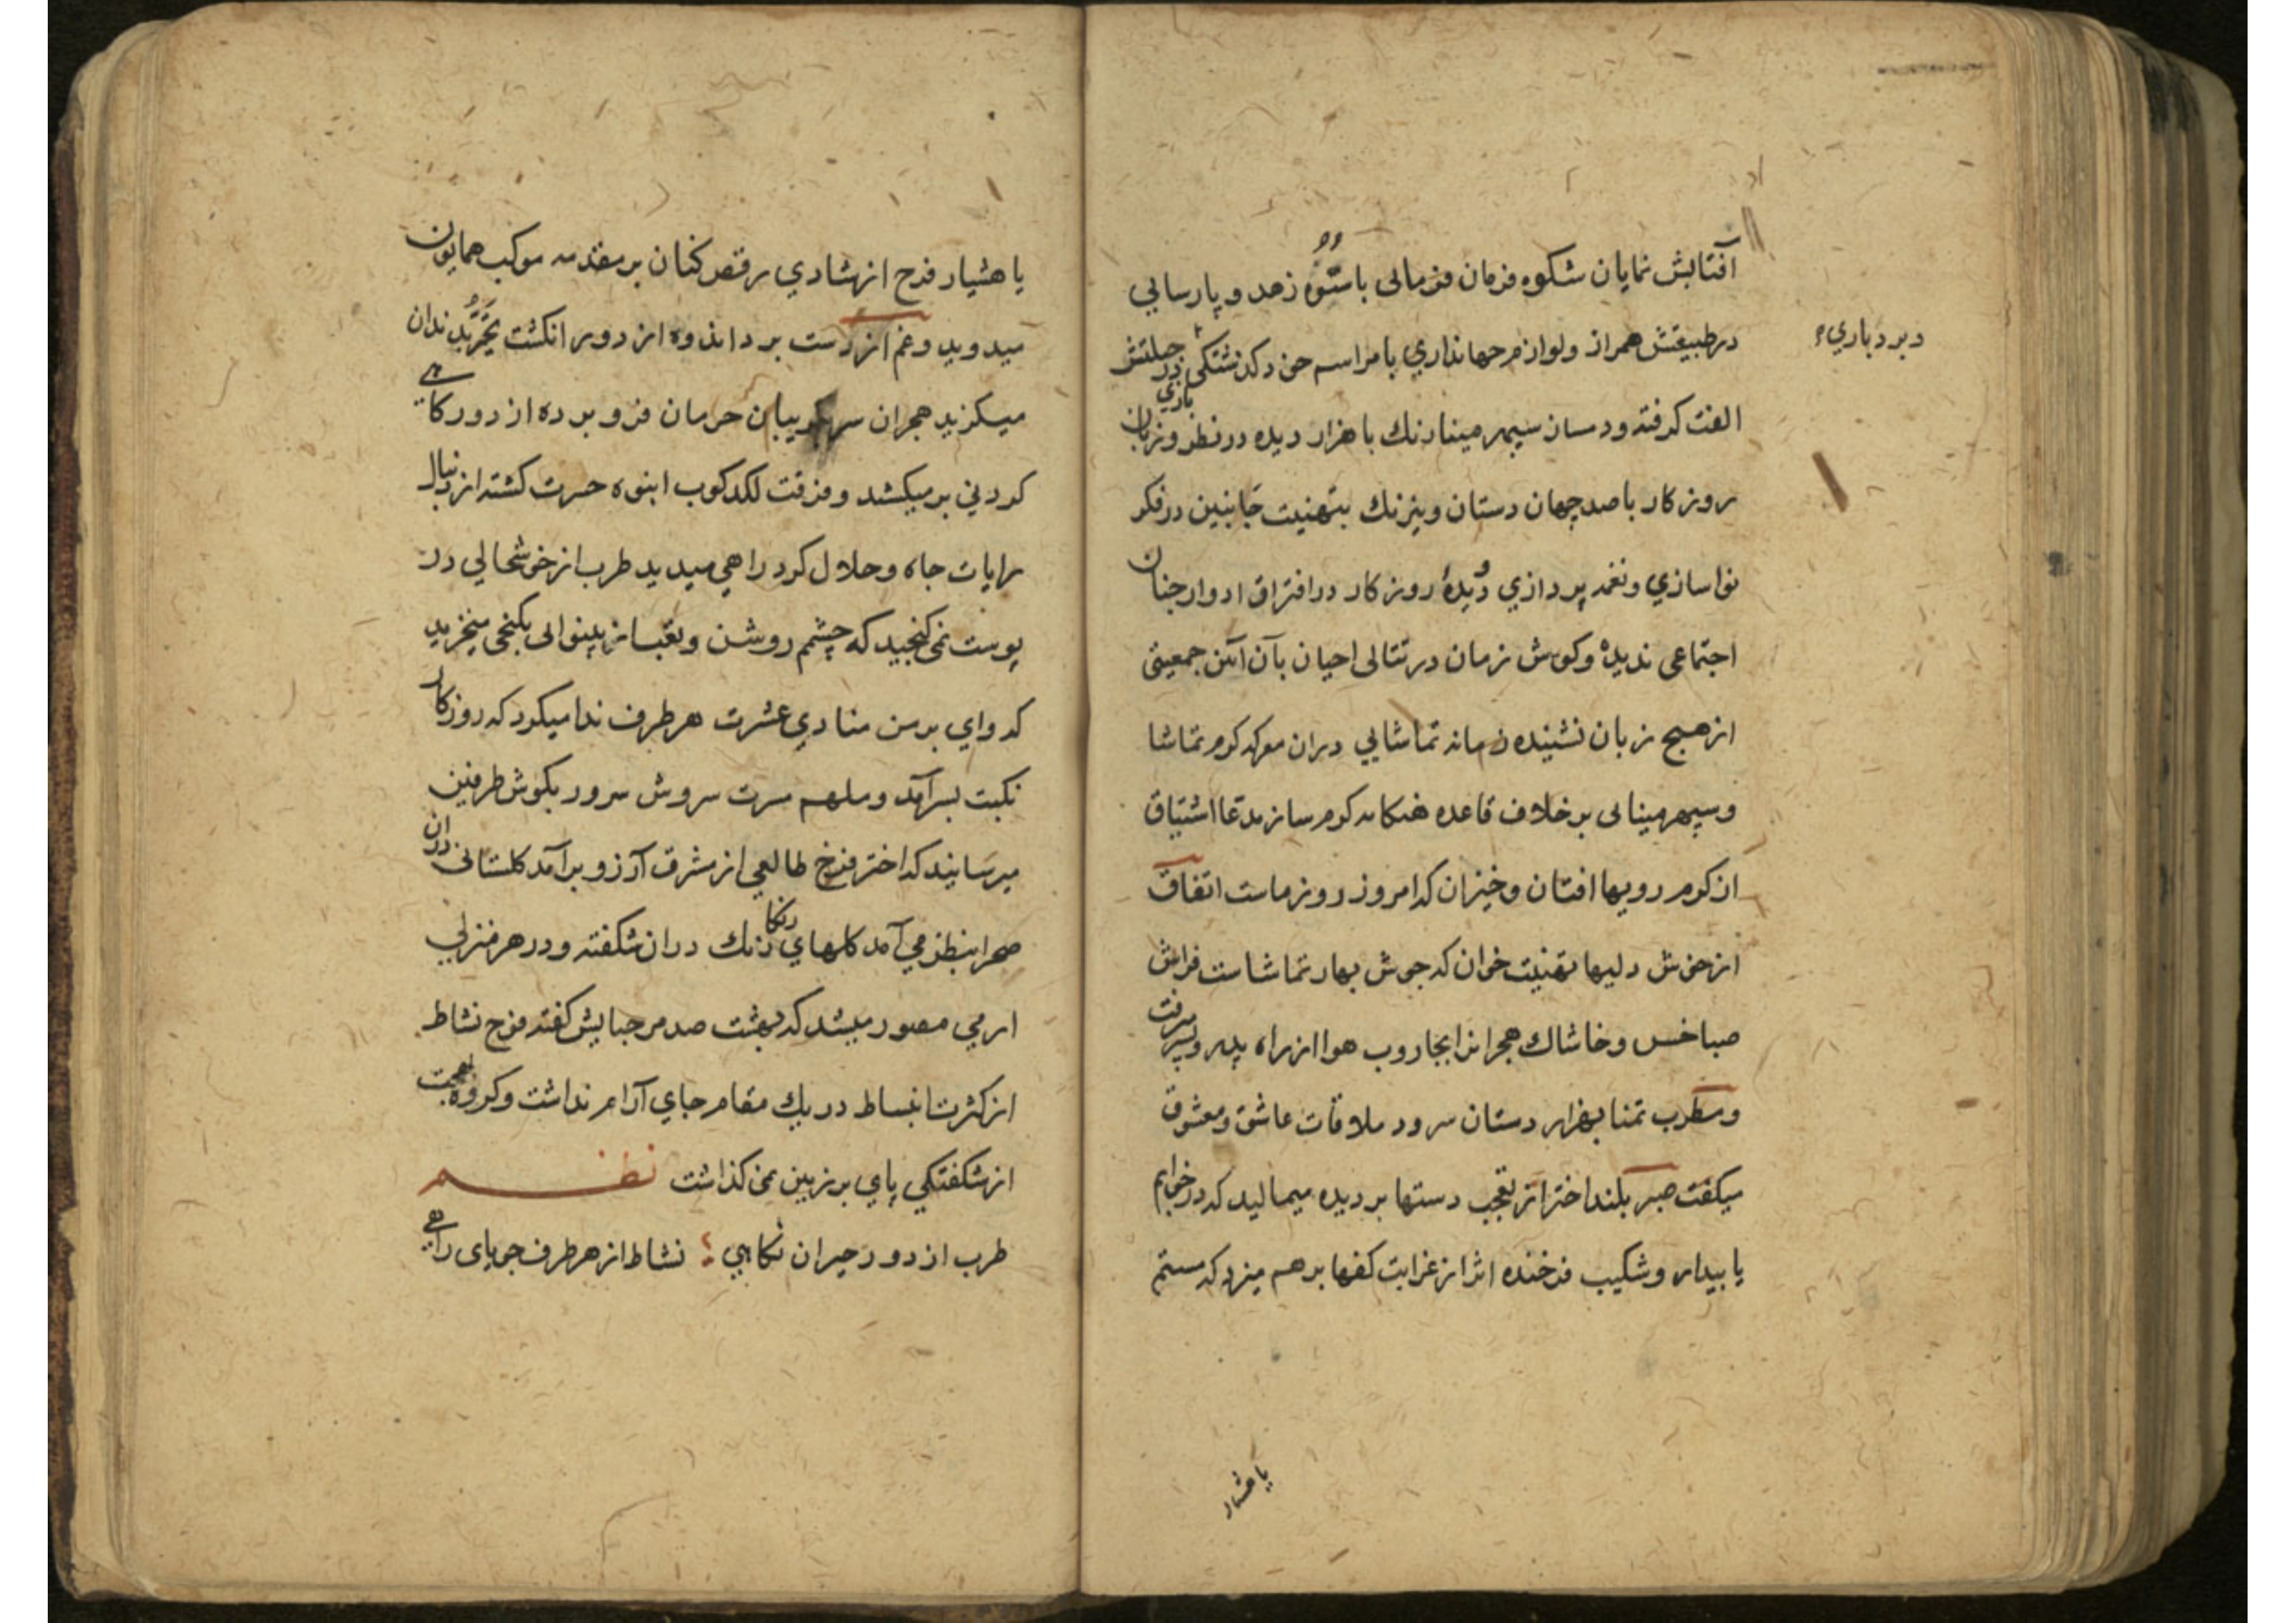 آفتابش نمایان شکوه فرمان فرمائی با ستوه زهد و پارسایي
در طبیعتش همراز ولوازم جهانداري با مراسم خود کذشتکي در جبلتش
و بردباري
الفت کرفته ودسان سپهر مینارنك با هزار دیده در نظر وزبان
روزکار با صد جهان دستان ونیرنك بتهنیت جانبین در فکر
نواسازي ونغمه پردازي ودیدهٔ روزکار در افتراق ادوار چنان
اجتماعی ندیده وکوش زمان در تتالی احیان بآن آئین جمعیتی
از هیچ زبان نشنیده زمانه تماشایي دران معرکه کرم تماشا
وسپهر مینائی بر خلاف قاعده هنکامه کرم ساز مدعا اشتیاق
از کرم رویها افتان وخیزان که امروز روز ماست اتفاق
از خوش دلیها تهنیت خوان که جوش بهار تماشاست فراش
صبا خس وخاشاك هجرانرا بجاروب هوا از راه پدر وپسر میرفت
ومطرب تمنا بهزار دستان سرود ملاقات عاشق ومعشوق
میکفت صبر بلند اختر از تعجب دستها بر دیده میمالید که در خوابم
یا بیدار وشکیب فرخنده اثر از غرابت کفها برهم میزد که مستم
یا هشیار
یا هشیار فرح از شادي رقص کنان بر مقدمه موکب همایون
میدوید وغم از دست برد اندوه از دور انکشت تحیر بدندان
میکزید هجران سر بکریبان حرمان فرو برده از دور کاهي
کردني بر میکشد وفرقت لکدکوب انبوه حسرت کشته از دنبال
رایات جاه وجلال کرد راهي میدید طرب از خوشحالي در
پوست نمی کنجید که چشم روشن وتعب از بینوائی بکنجی میخزید
که واي بر من منادي عشرت هر طرف ندا میکرد که روزکار
نکبت بسر آمد وملهم مسرت سروش سرور بکوش طرفین
میرسانید که اختر فرخ طالعي از مشرق آرزو برآمد کلستانی دران
صحرا بنظر مي آمد کلهاي رنکارنك دران شکفته ودر هر منزلي
ارمي مصور میشد که بهشت صد مرحبایش کفته فوج نشاط
از کثرت انبساط در یك مقام جاي آرام نداشت وکروه بهجت
از شکفتکي پاي بر زمین نمی کذاشت نظم
طرب از دور حیران نکاهي ؛ نشاط از هر طرف جویای راهي